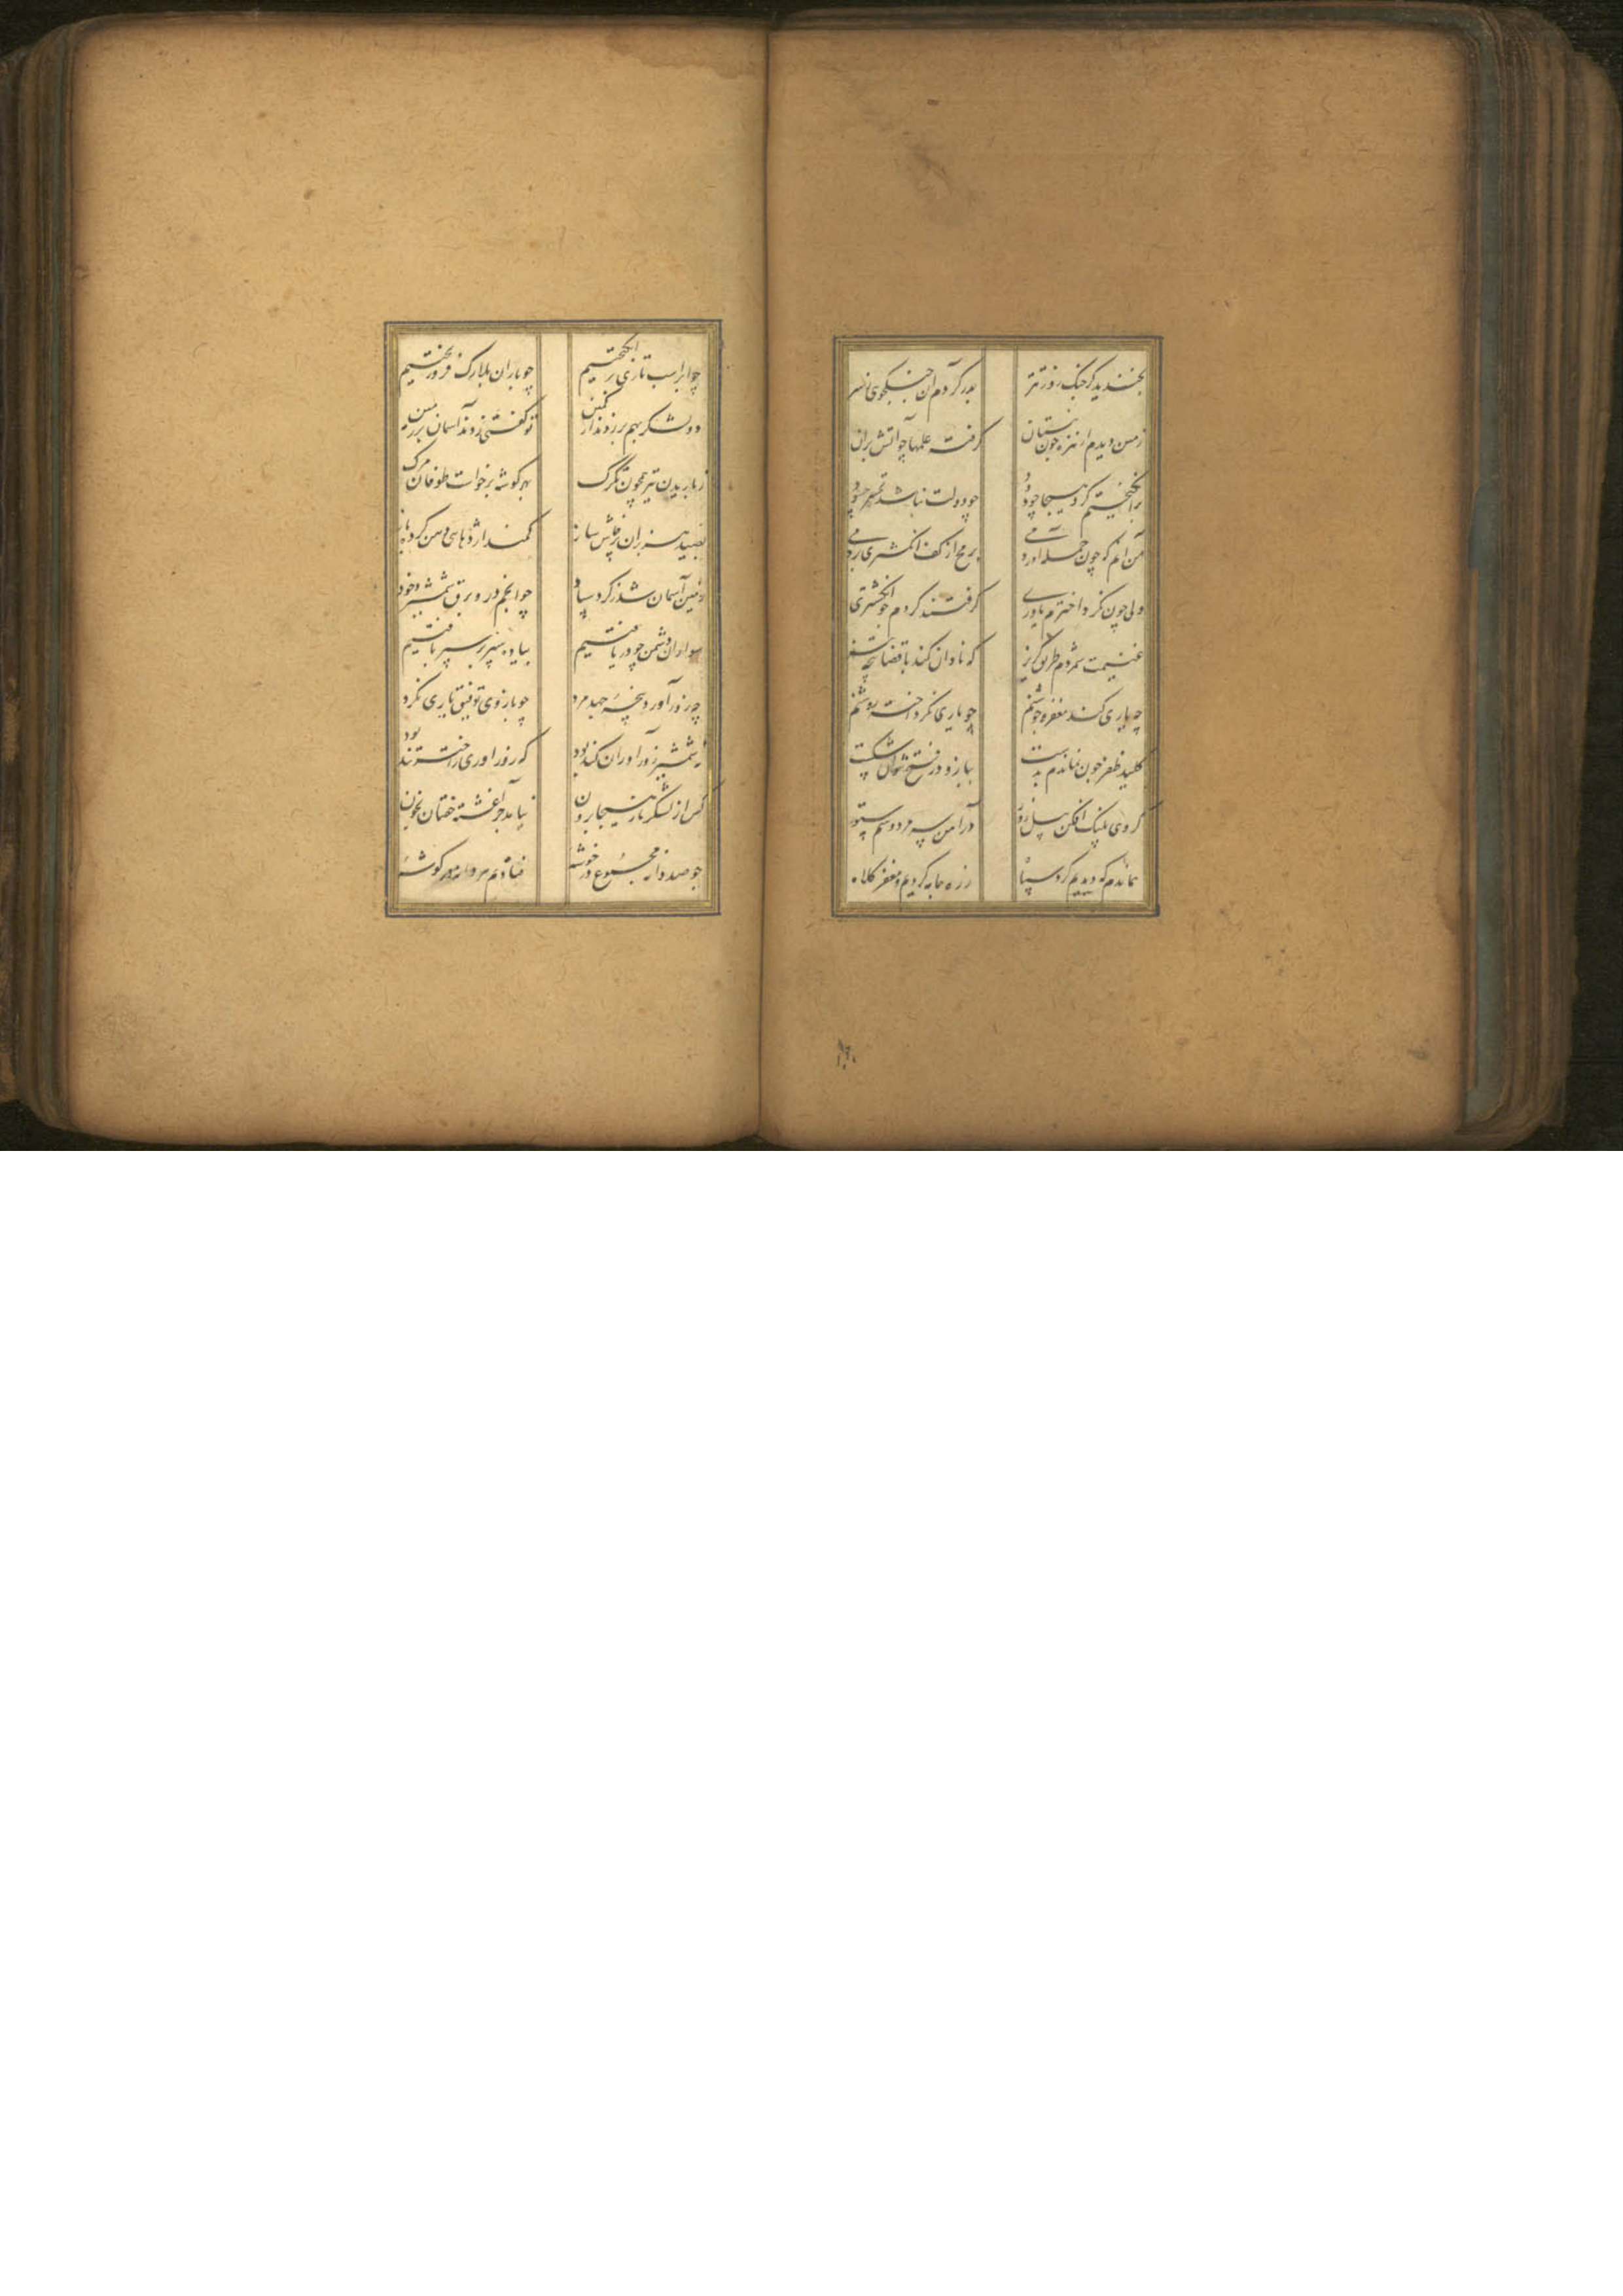 بخندید کز جنگ روز تتر بدر کردم آن جنگجوی ز سر
زمین دیدم از نیزه چون نیستان گرفته علمها چو آتش بران
برانگیختم گرد هیجا چو دود چو دولت نباشد تهور چه سود
من آنم که چون حمله اوردمی برمح از کف انگشتری بردمی
ولی چون نکرد اخترم یاوری گرفتند گردم چو انگشتری
غنیمت شمردم طریق گریز که نادان کند با قضا پنجه
چه یاری کند مغفر و جوشنم چو یاری نکرد اختر روشنم
کلید ظفر چون نماندم بدست ببازو در فتح نتوان شکست
گروی پلنگ افکن پیل زور در آهن سر مرد و سم ستور
هماندم که دیدیم گرد سپاه زره جامه کردیم و مغفر کلاه
چو ابر اسب تازی برانگیختیم چو باران بلارک فرو ریختیم
دو لشکر بهم بر زدند از کمین تو گفتی زدند آسمان بر زمین
ز باریدن تیر همچون تگرگ بهر گوشه برخواست طوفان مرگ
بصید هزبران پرخاش ساز کمند اژدهای دهن کرده باز
زمین آسمان شد ز گرد چو انجم درو برق شمشیر و خود
سواران دشمن چو دریافتیم پیاده سپر بر سپر بافتیم
چه زور آورد پنجهٔ جهد مرد چو بازوی توفیق یاری نکرد
نه شمشیر زورآوران کند بود که زور اوری ز اختر تند بود
کس از لشکر ما ز هیجا برون نیامد جز آغشته خفتان بخون
چو صد دانه مجموع در خوشهٔ فتادیم هر دانهٔ گوشهٔ